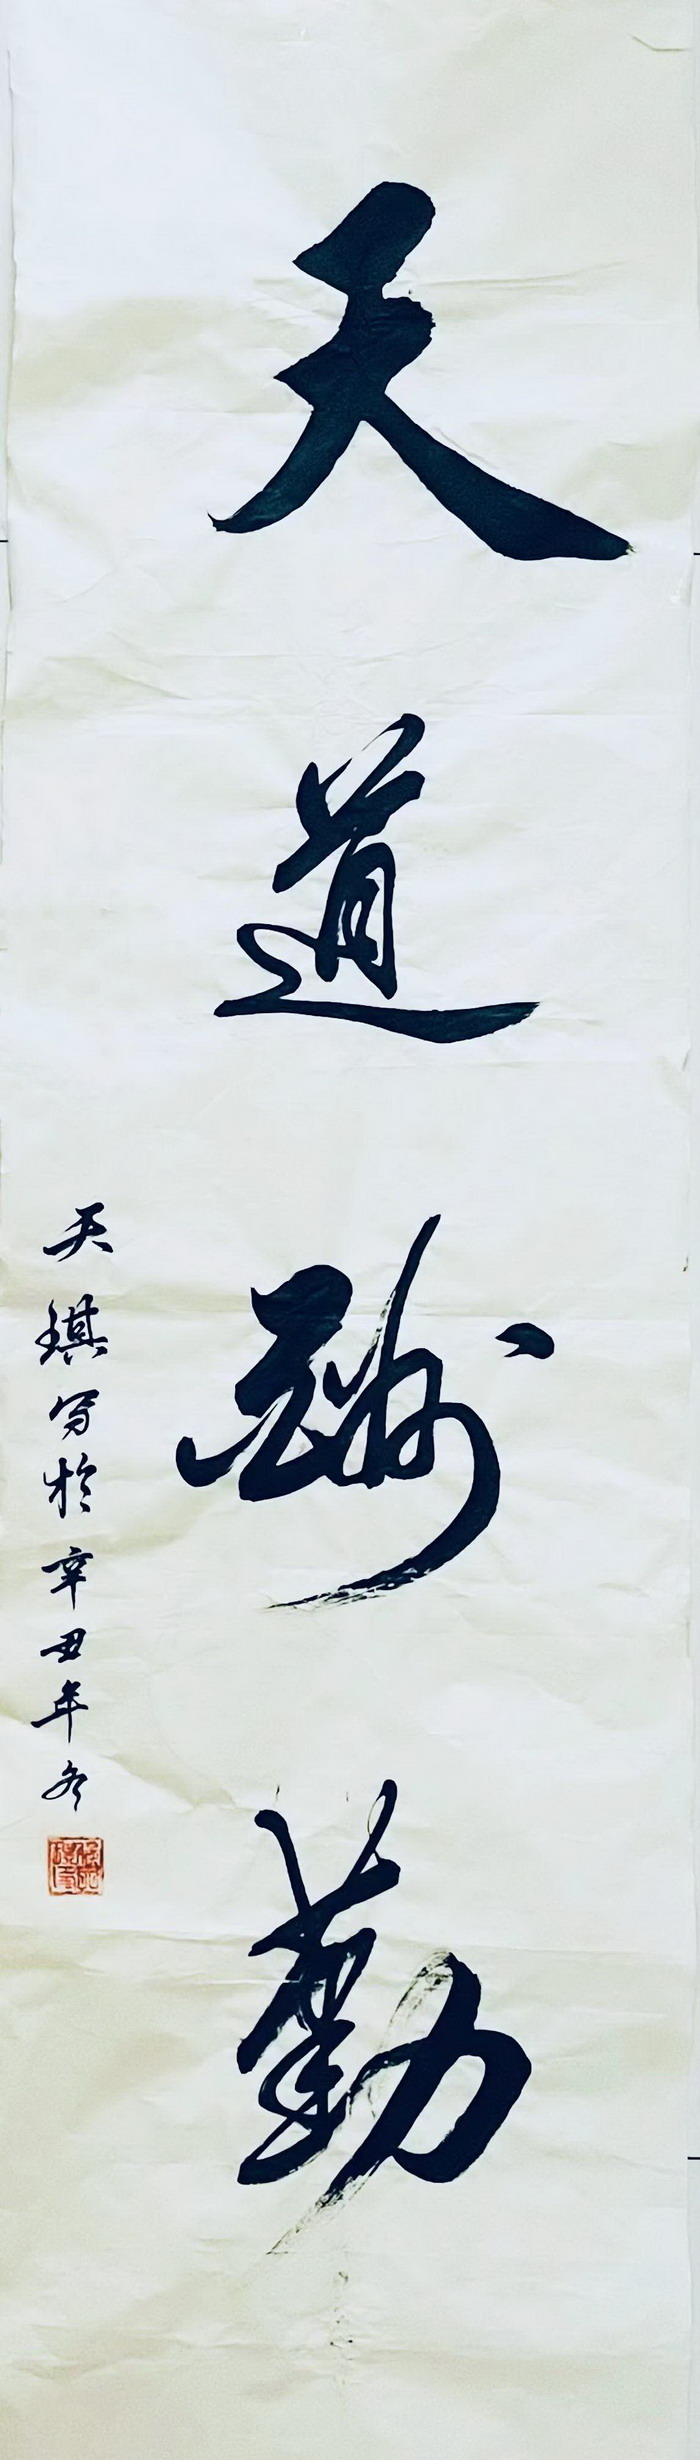 天道酬勤
天琪写於辛丑年冬